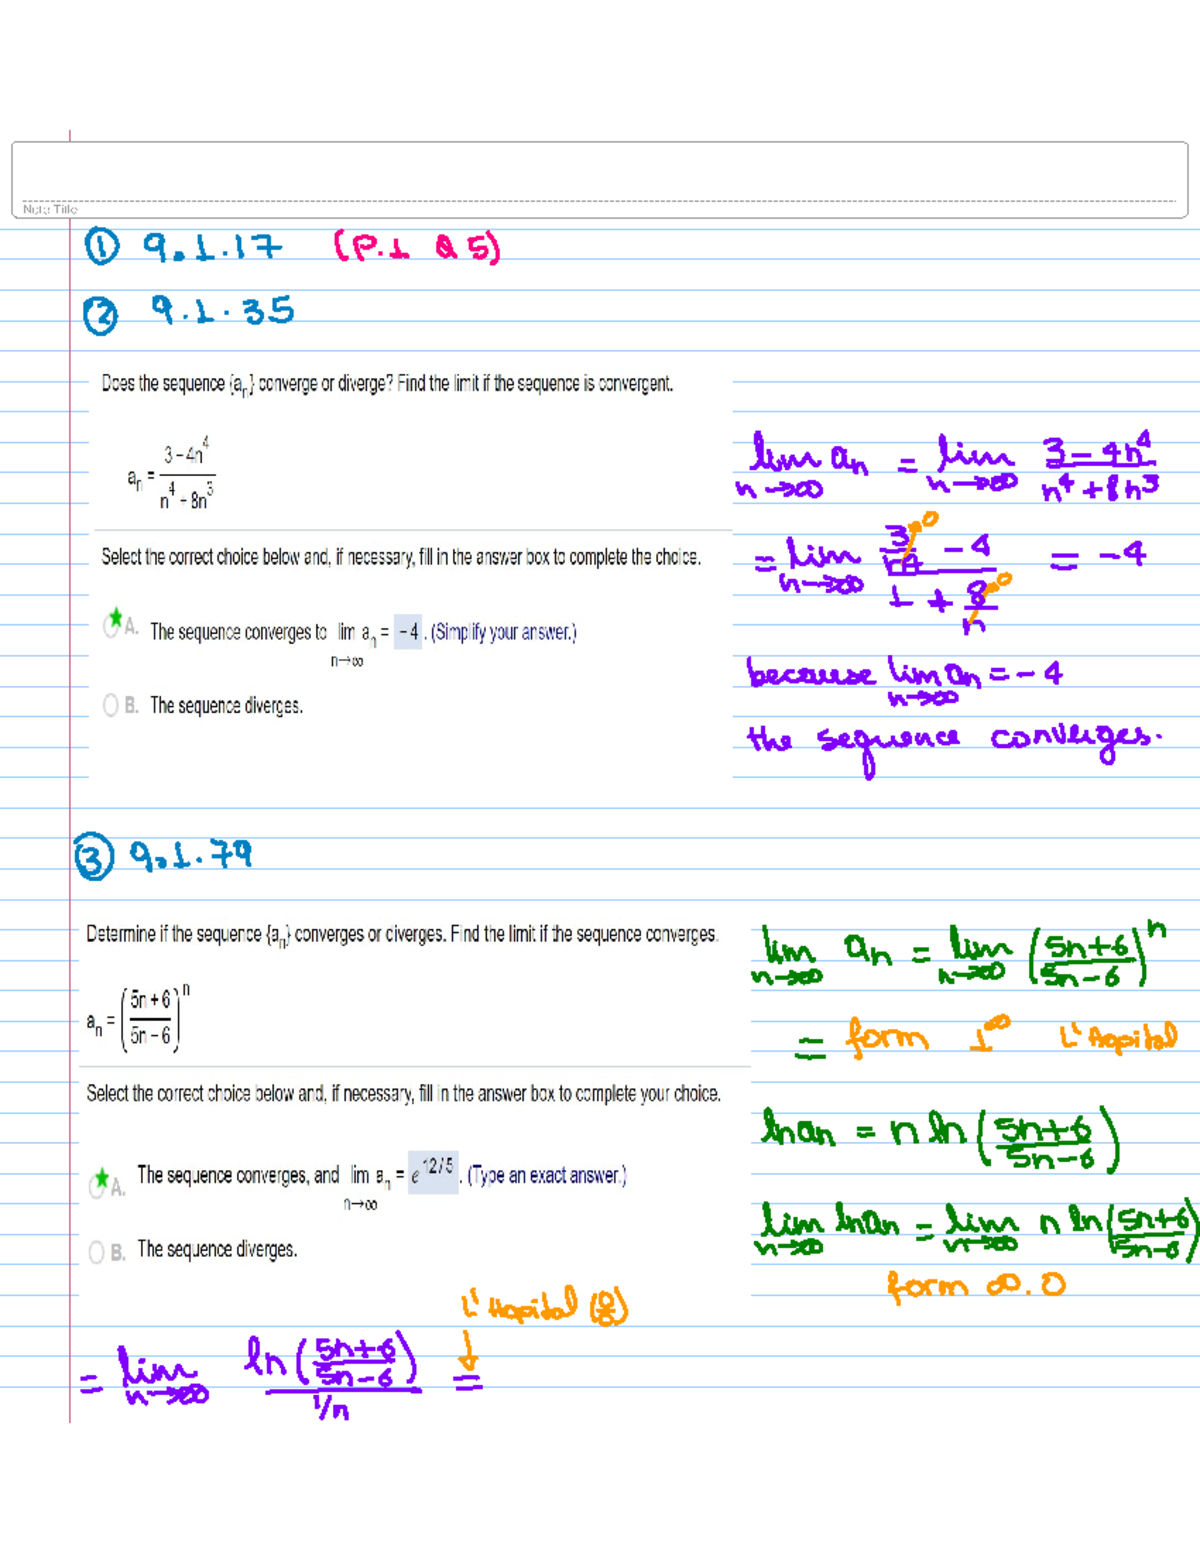 Note Title
① 9.1.17 (P.1 Q5)
② 9.1.35
Does the sequence {aₙ} converge or diverge? Find the limit if the sequence is convergent.
aₙ = (3 − 4n⁴)/(n⁴ + 8n³)
lim n→∞ aₙ = lim n→∞ (3 − 4n⁴)/(n⁴ + 8n³)
= lim n→∞ (3/n⁴ →0 − 4)/(1 + 8/n →0) = −4
Select the correct choice below and, if necessary, fill in the answer box to complete the choice.
A. The sequence converges to lim n→∞ aₙ = −4. (Simplify your answer.)
B. The sequence diverges.
because lim n→∞ aₙ = −4
the sequence converges.
③ 9.1.79
Determine if the sequence {aₙ} converges or diverges. Find the limit if the sequence converges.
aₙ = ((5n + 6)/(5n − 6))ⁿ
Select the correct choice below and, if necessary, fill in the answer box to complete your choice.
A. The sequence converges, and lim n→∞ aₙ = e^(12/5). (Type an exact answer.)
B. The sequence diverges.
lim n→∞ aₙ = lim n→∞ ((5n+6)/(5n−6))ⁿ
= form 1^∞ L'Hopital
ln aₙ = n ln((5n+6)/(5n−6))
lim n→∞ ln aₙ = lim n→∞ n ln((5n+6)/(5n−6))
form ∞.0
L'Hopital (0/0)
↓
= lim n→∞ ln((5n+6)/(5n−6))/(1/n) =